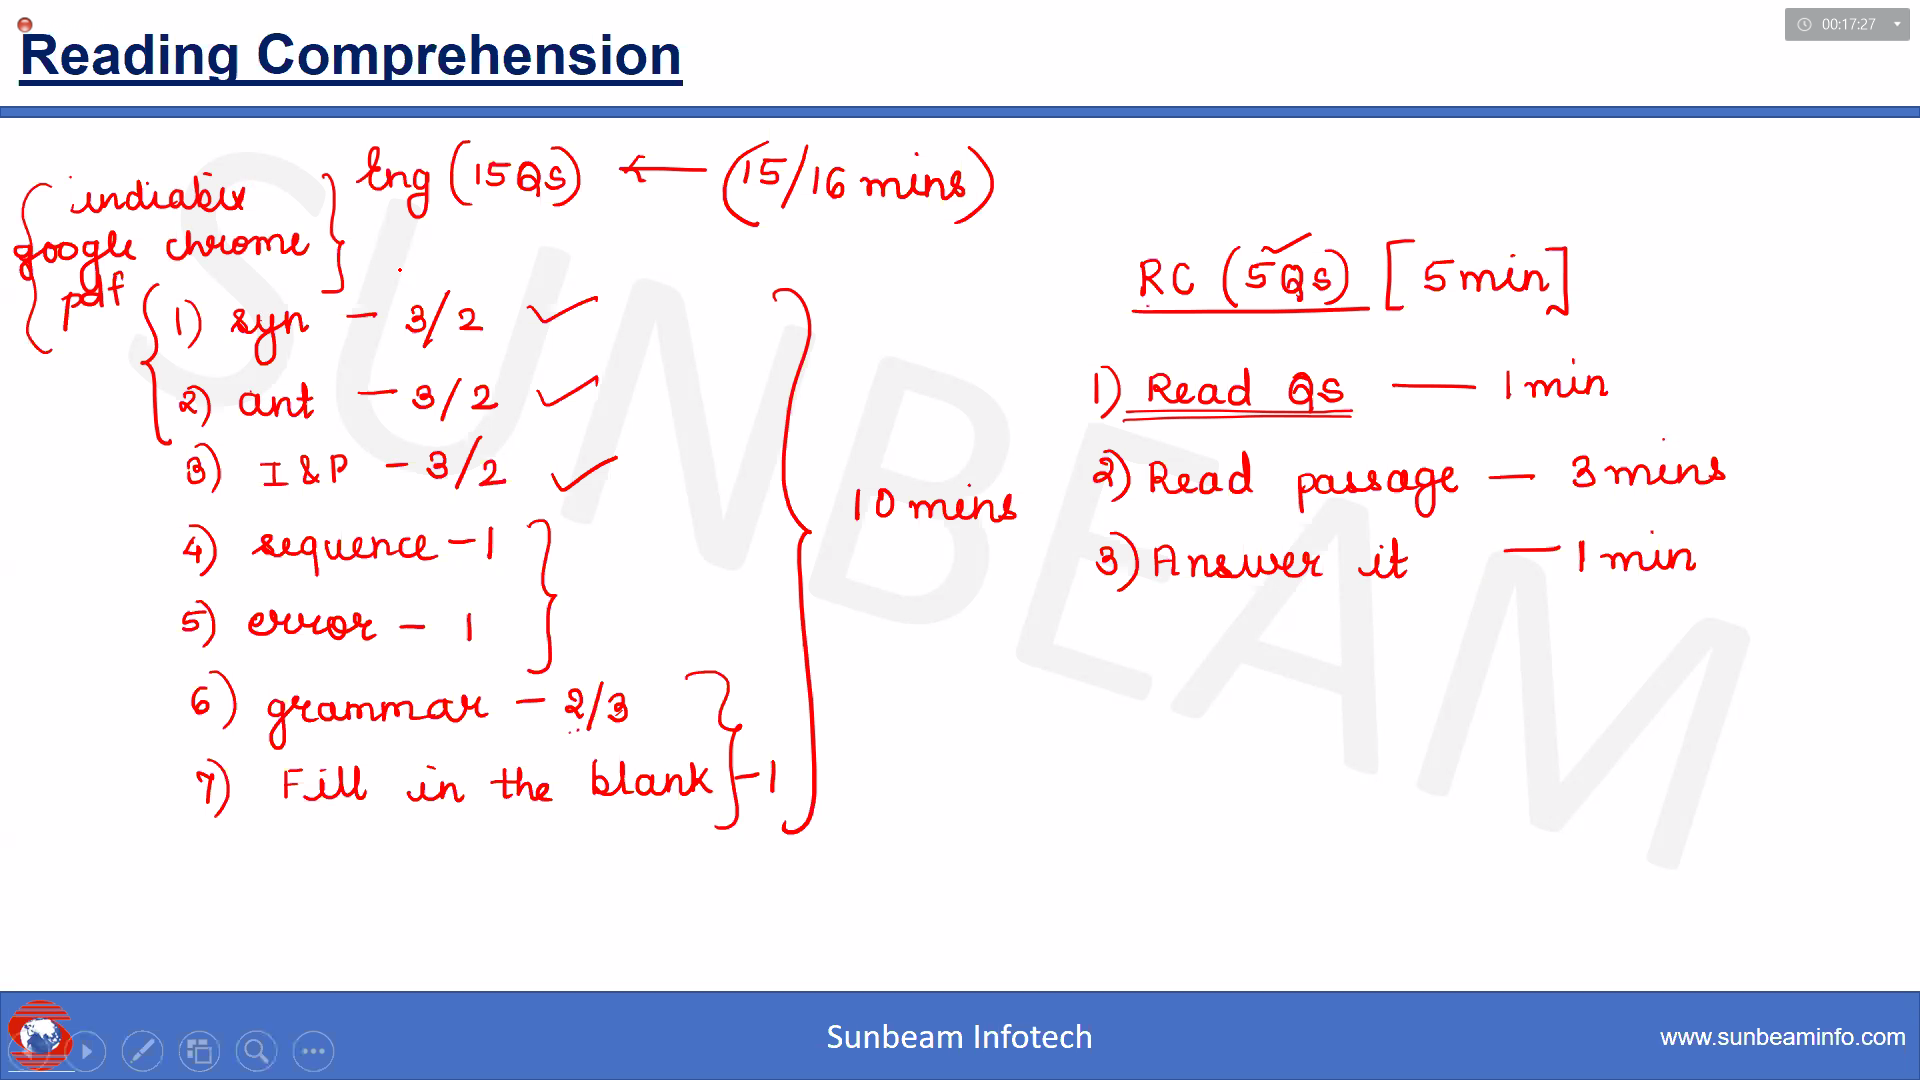 00:17:27
Reading Comprehension
Eng (15Qs) ← (15/16 mins)
indiabix
google chrome
pdf
1) syn - 3/2 ✓
2) ant - 3/2 ✓
3) I & P - 3/2 ✓
4) sequence - 1
5) error - 1
6) grammar - 2/3
7) Fill in the blank - 1
10 mins
RC (5Qs) [5 min]
1) Read Qs — 1 min
2) Read passage — 3 mins
3) Answer it — 1 min
SUNBEAM
Sunbeam Infotech
www.sunbeaminfo.com